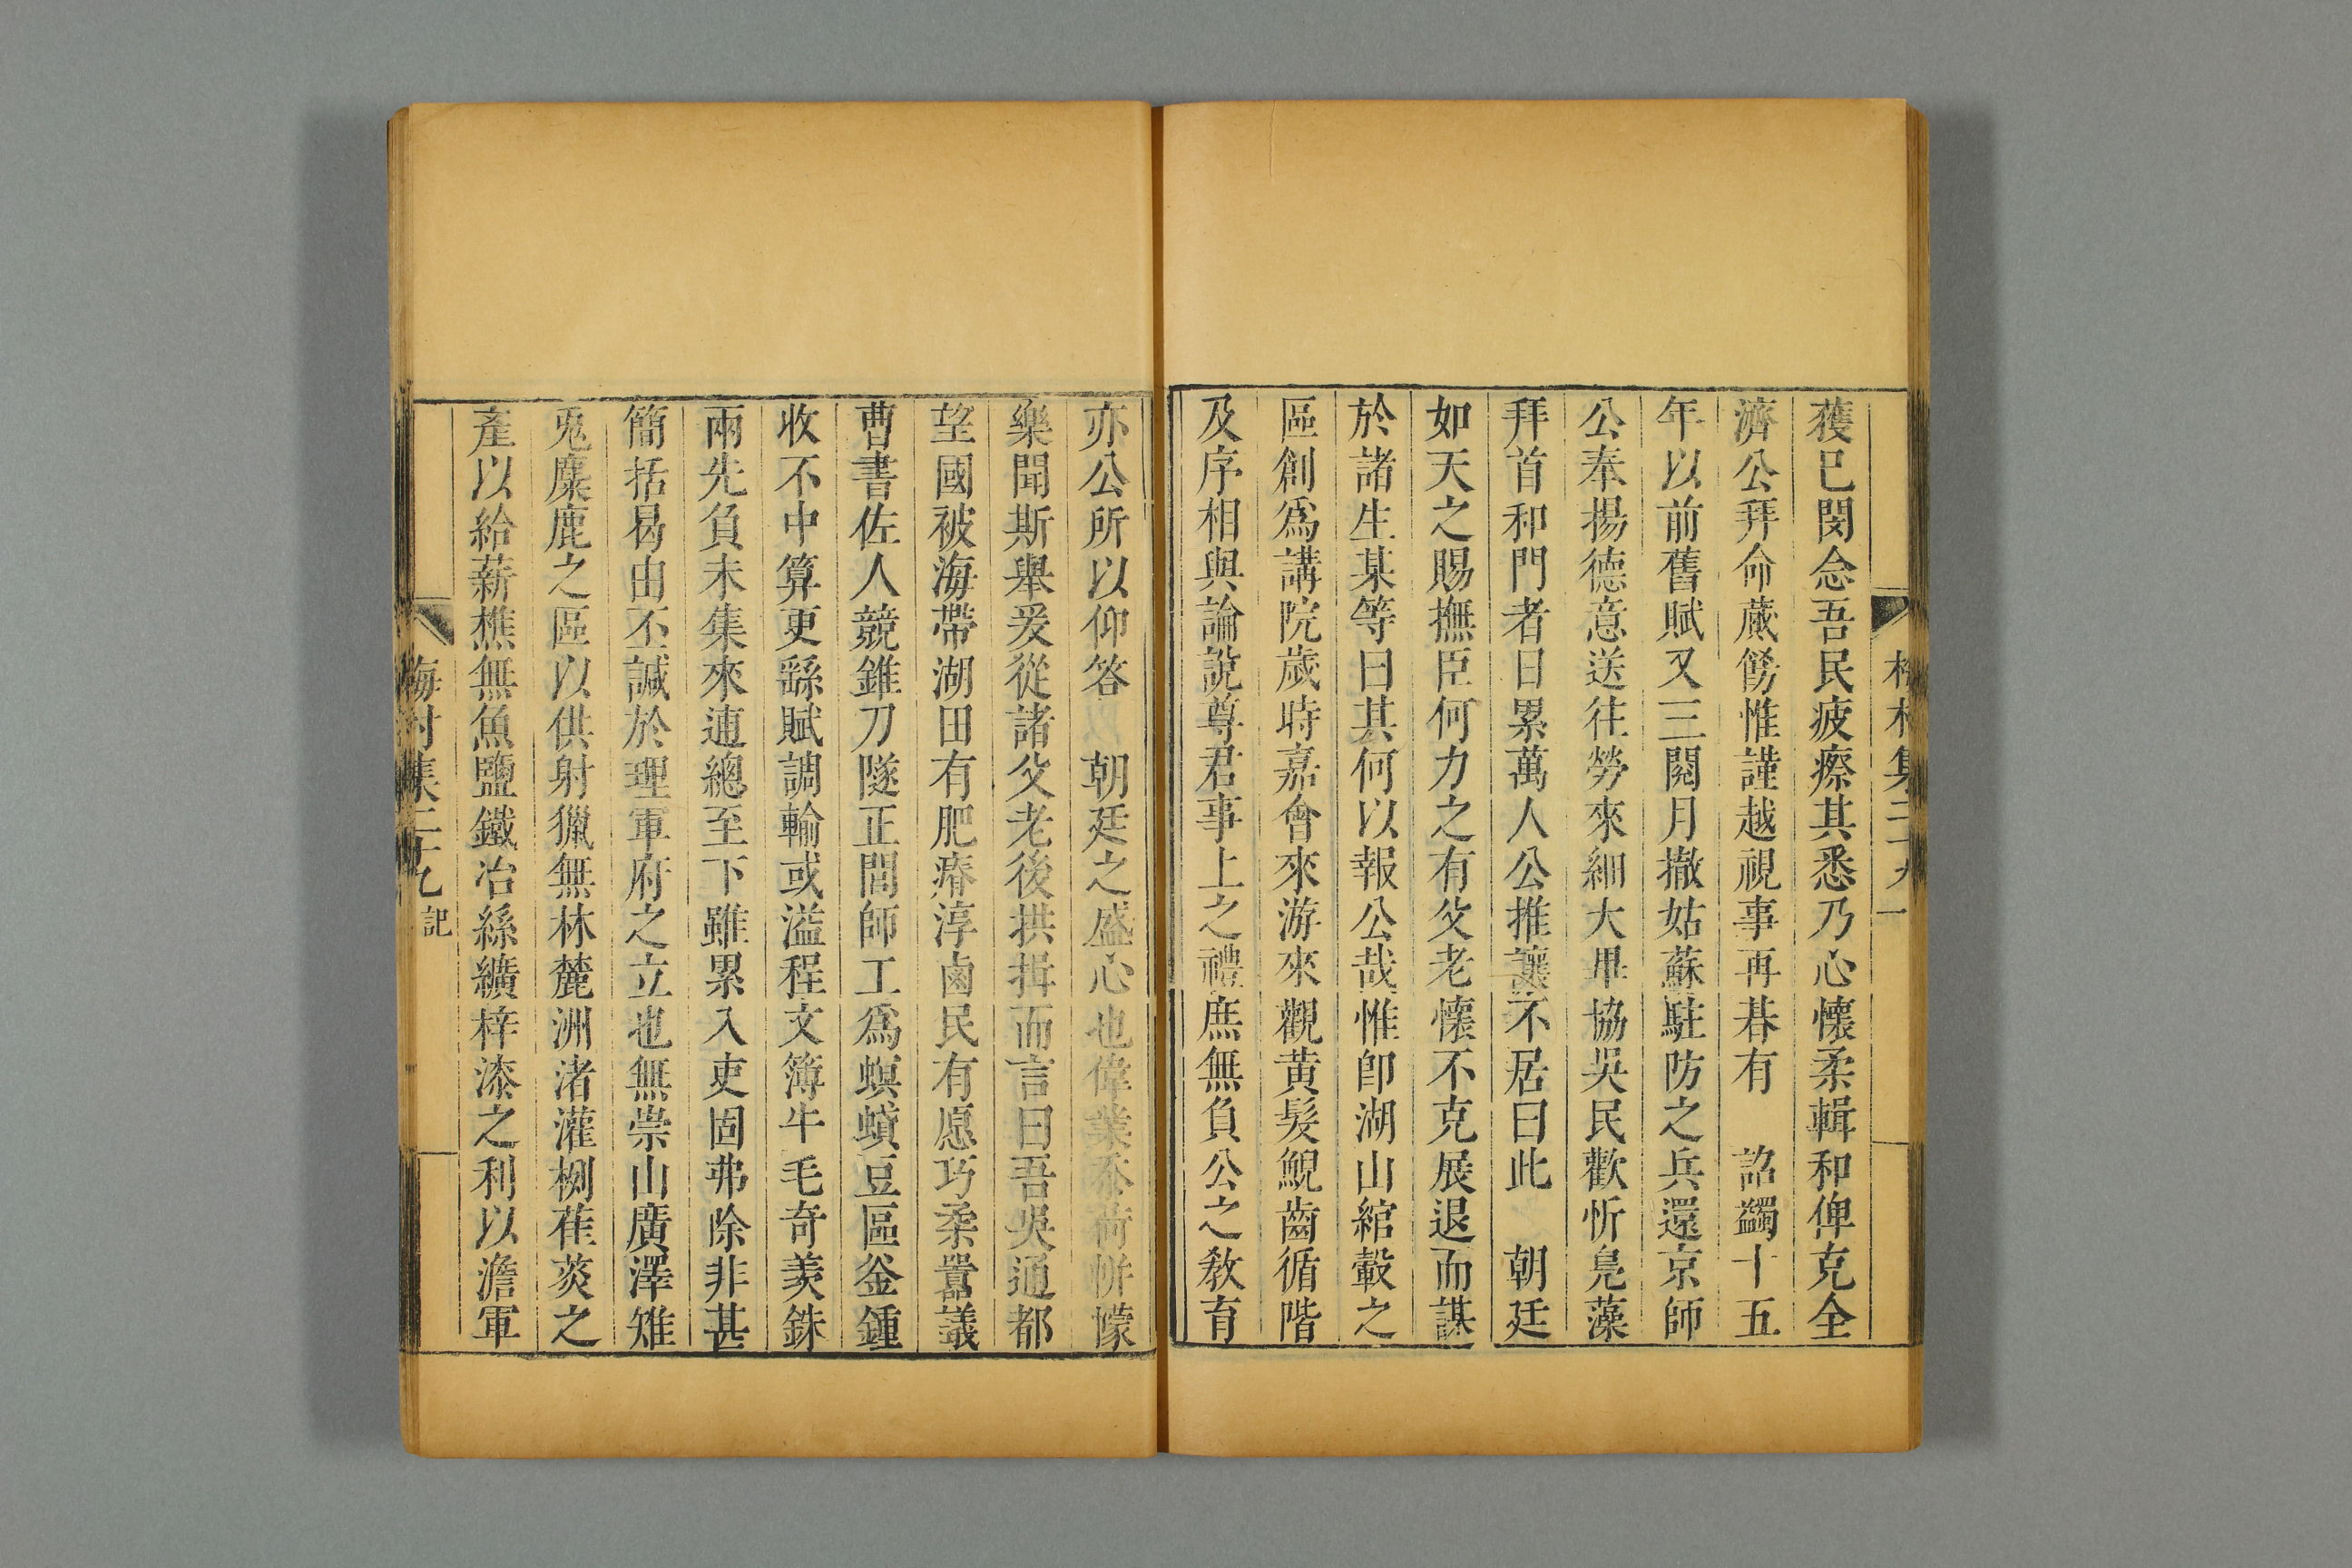 梅村集二十九 一
獲已閔念吾民疲瘵其悉乃心懷柔輯和俾克全
濟公拜命蕆飭惟謹越視事再朞有 詔蠲十五
年以前舊賦又三閱月撤姑蘇駐防之兵還京師
公奉揚德意送往勞來細大畢協吳民歡忻鳧藻
拜首和門者日累萬人公推讓不居曰此 朝廷
如天之賜撫臣何力之有父老懷不克展退而謀
於諸生某等曰其何以報公哉惟卽湖山綰轂之
區創爲講院歲時嘉會來游來觀黃髮鯢齒循階
及序相與論說尊君事上之禮庶無負公之敎育
亦公所以仰答 朝廷之盛心也偉業忝荷帡幪
樂聞斯舉爰從諸父老後拱揖而言曰吾吳通都
望國被海帶湖田有肥瘠淳鹵民有愿巧柔嚚議
曹書佐人競錐刀隧正閭師工爲螟蟘豆區釜鍾
收不中算更繇賦調輸或溢程文簿牛毛奇羨銖
兩先負未集來逋總至下雖累入吏固弗除非甚
簡括曷由丕諴於理軍府之立也無崇山廣澤雉
兎麋鹿之區以供射獵無林麓洲渚灌栵萑葵之
產以給薪樵無魚鹽鐵冶絲纊梓漆之利以澹軍
梅村集二十九 記